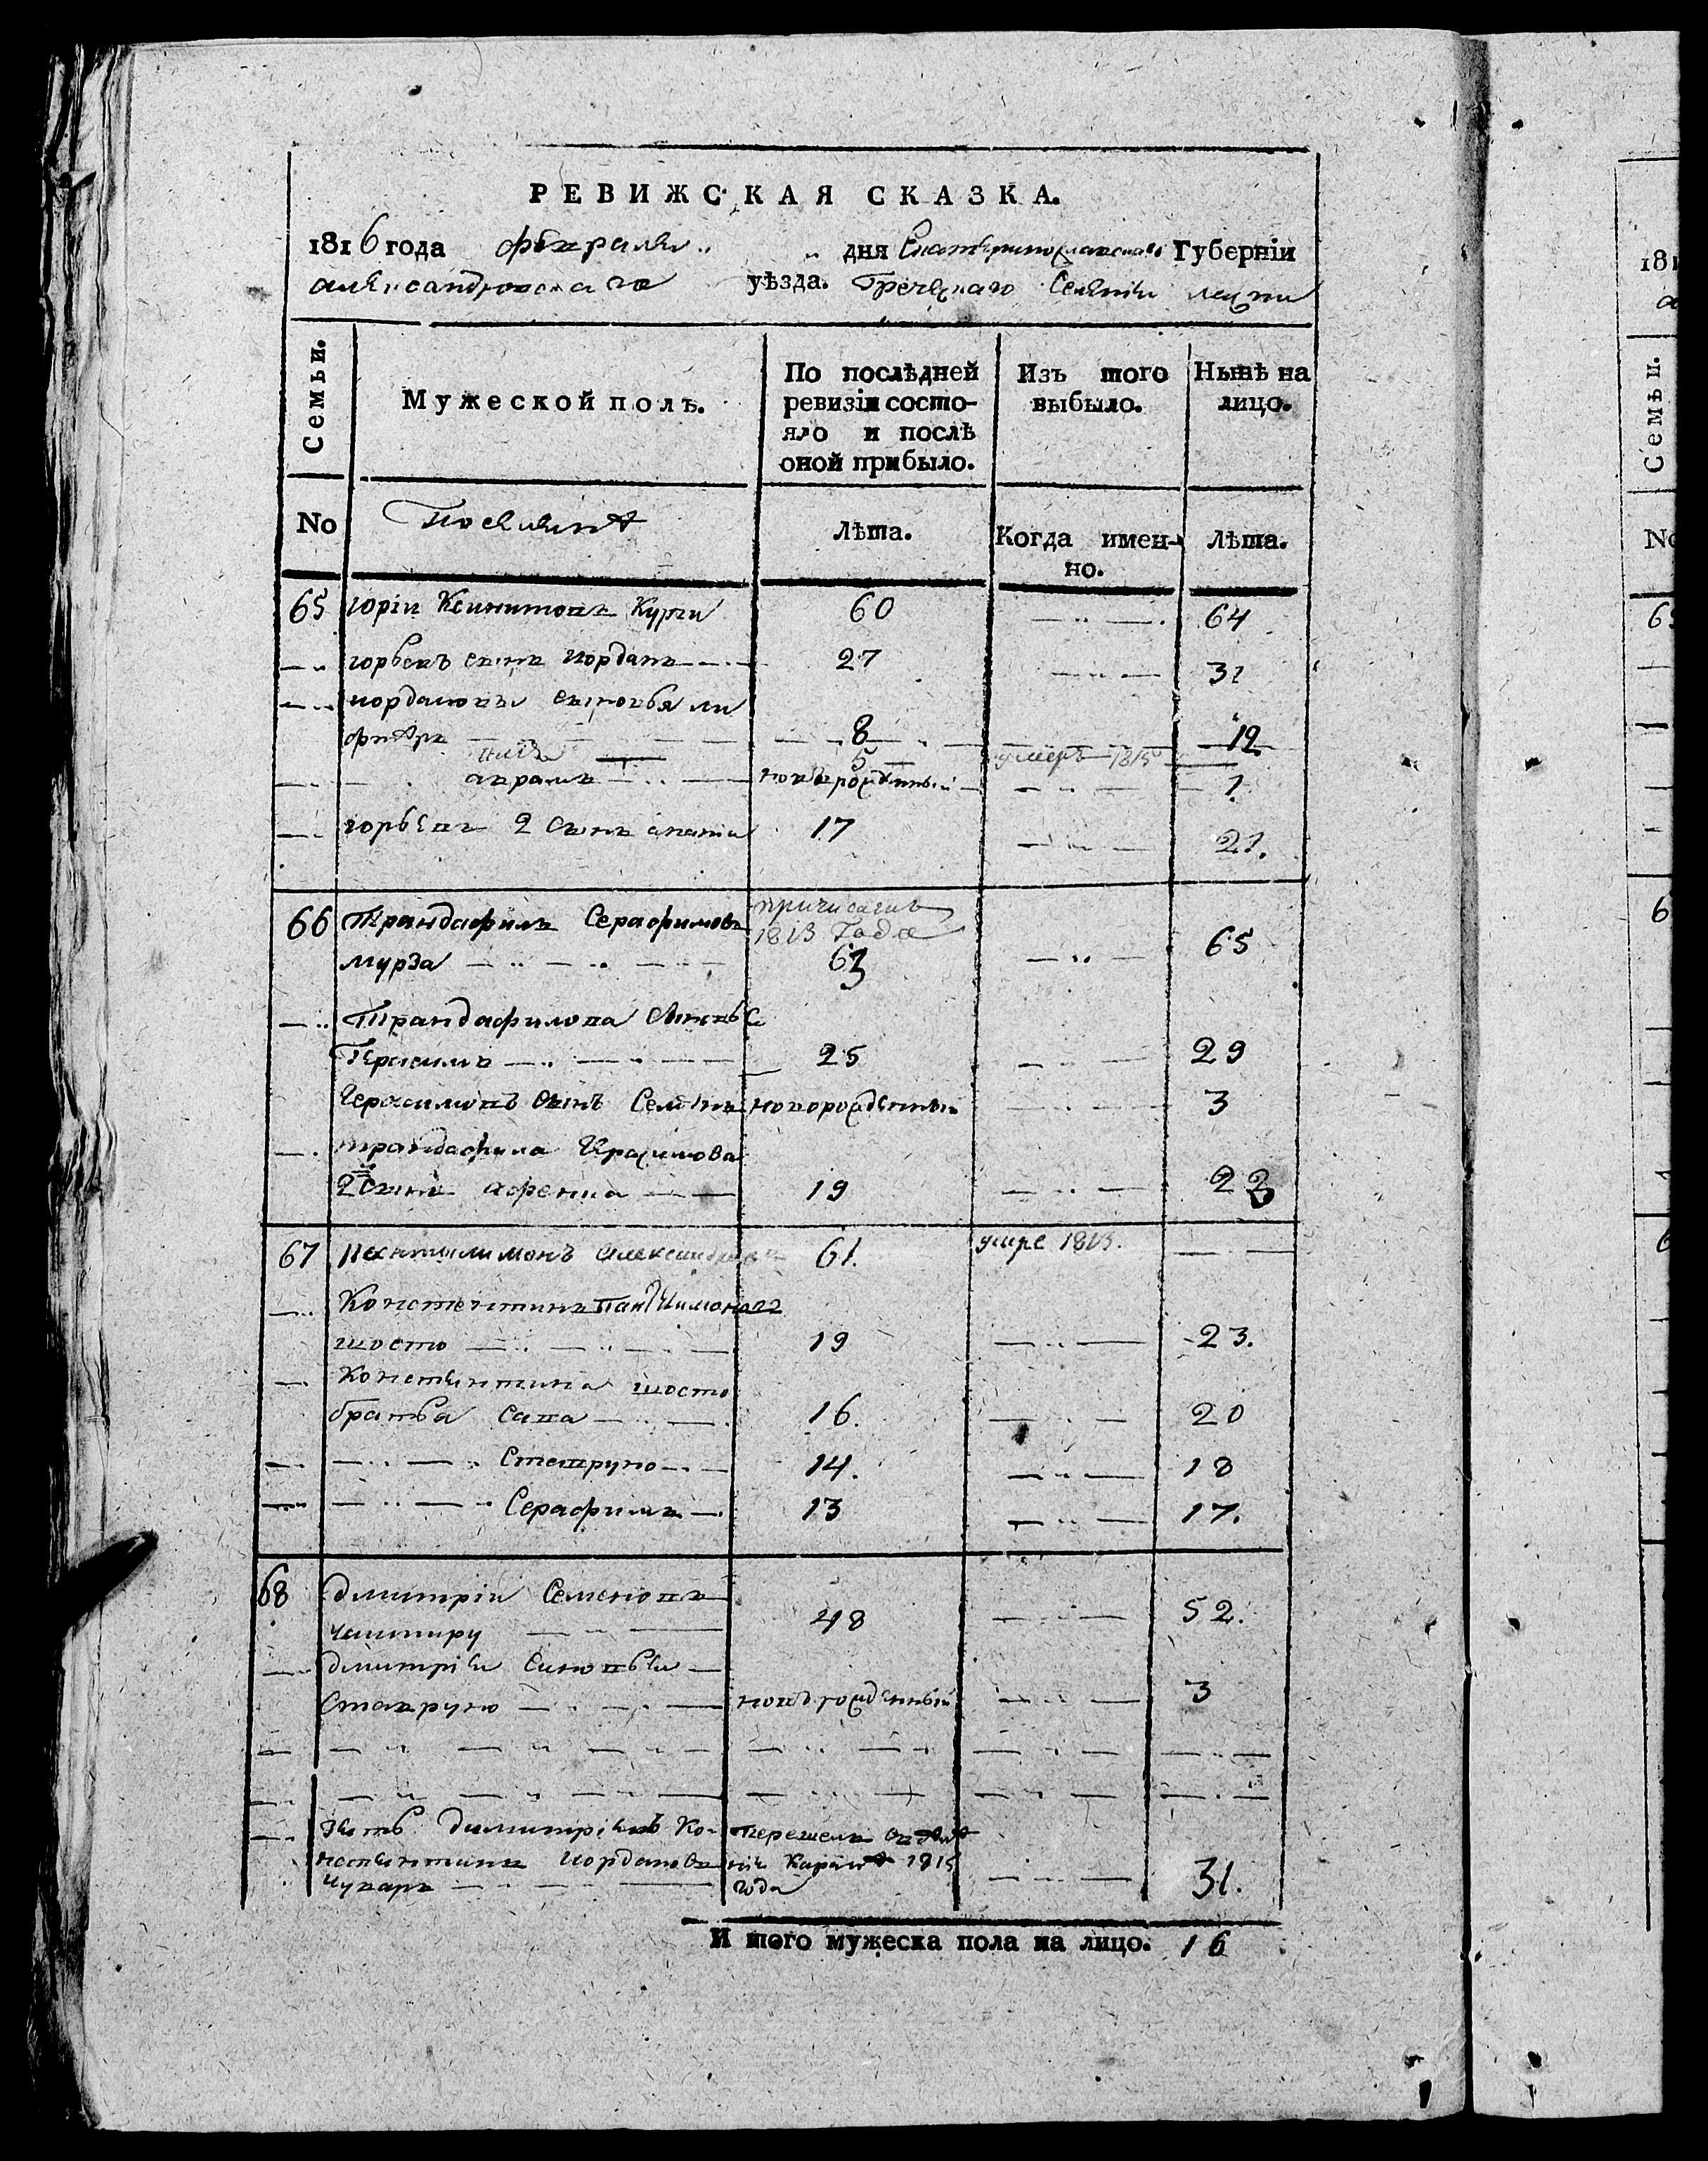 РЕВИЖСКАЯ СКАЗКА.
1816 года февраля дня Екатеринославской Губерніи
александровскаго уѣзда. Греческаго Селенія
Семьи. Мужеской полъ. По послѣдней ревизіи состояло и послѣ оной прибыло. Изъ того выбыло. Нынѣ на лицо.
No поселянѣ Лѣта. Когда именно. Лѣта.
65 юрій Курчи 60 64
юрьевъ сынъ иорданъ 27 31
иордановы сыновья ли
фтѣръ 8 12
5 умеръ 1815
авраамъ новорожденный 1
юрьевъ 2 сынъ 17 21.
66 Трандафилъ Серафимовъ причисленъ 1813 Года
мурза 63 65
Трандафилова сынъ
Герасимъ 25 29
Герасимовъ сынъ Семенъ новорожденный 3
трандафила Герасимова
2й сынъ афенка 19 23
67 Пантилимонъ Александровъ 61. умре 1813.
Константинъ Пантилимоновъ
шосто 19 23.
Константина шосто
братья сава 16. 20
Ставруно 14. 18
Серафимъ 13 17.
68 дмитрій Семеновъ
чаптиру 48 52.
дмитрія Синовья
Ставруно новорожденный 3
Зять димитріевъ Ко-
нстантинъ иордановъ
чукаръ
перешелъ изъ
нія Карани 1815
года 31.
И того мужеска пола на лицо. 16
181
Семьи.
No